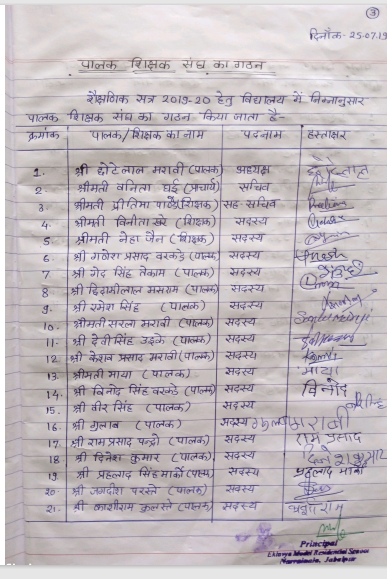 3
दिनाँक- 25.07.19
पालक शिक्षक संघ का गठन
शैक्षणिक सत्र 2019-20 हेतु विद्यालय में निम्नानुसार
पालक शिक्षक संघ का गठन किया जाता है-
क्रमांक पालक/शिक्षक का नाम पदनाम हस्ताक्षर
1. श्री छोटेलाल मरावी (पालक) अध्यक्ष
2. श्रीमती वनिता घई (प्राचार्य) सचिव
3. श्रीमती प्रीतिमा पाण्डे (शिक्षक) सह-सचिव
4. श्रीमती विनीता खरे (शिक्षक) सदस्य
5. श्रीमती नेहा जैन (शिक्षक) सदस्य
6. श्री गणेश प्रसाद वरकडे (पालक) सदस्य Ganesh
7 श्री गेंद सिंह तेकाम (पालक) सदस्य
8 श्री हिरामीलाल मसराम (पालक) सदस्य
9. श्री रमेश सिंह (पालक) सदस्य
10. श्रीमती सरला मरावी (पालक) सदस्य
11. श्री देवी सिंह उइके (पालक) सदस्य
12 श्री केशव प्रसाद मरावी (पालक) सदस्य
13. श्रीमती माया (पालक) सदस्य माया
14. श्री विनोद सिंह वरकडे (पालक) सदस्य विनोद
15. श्री वीर सिंह (पालक) सदस्य
16. श्री गुलाब (पालक) सदस्य मरावी
17. श्री राम प्रसाद पन्द्रो (पालक) सदस्य राम प्रसाद
18 श्री दिनेश कुमार (पालक) सदस्य
19 श्री प्रहलाद सिंह मार्को (पालक) सदस्य प्रहलाद मार्को
20. श्री जगदीश परस्ते (पालक) सदस्य
21. श्री काशीराम कुलस्ते (पालक) सदस्य काशीराम
Principal
Eklavya Model Residential School
Narrainala, Jabalpur